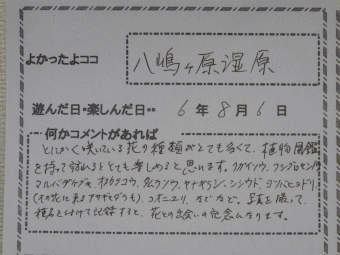 よかったよココ
八嶋ヶ原湿原
遊んだ日・楽しんだ日・・ 6 年 8 月 6 日
何かコメントがあれば
とにかく咲いている花の種類がとても多くて、植物図鑑
を持って訪れるととても楽しめると思います。クガイソウ、フシグロセンノウ
マルバダケブキ、オオカラコウ、タムラソウ、ヤナギラン、シシウド、ヨツバヒヨドリ
(その花に来るアサギマダラも)、コオニユリ、などなど。写真を撮って、
種名をつけて記録すると、花との出会いの記念になります。